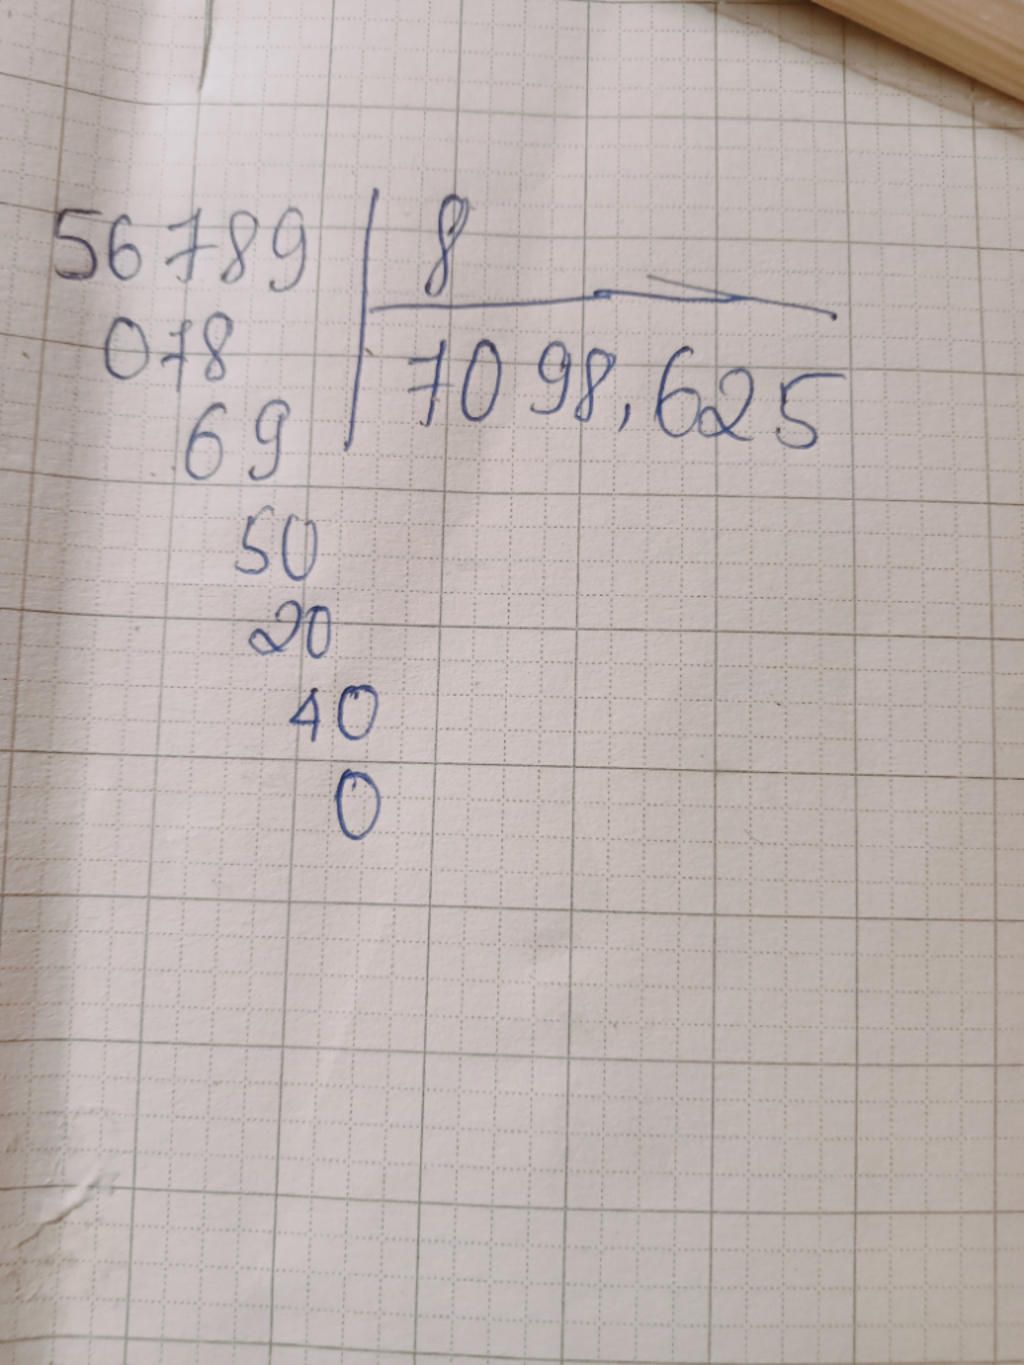 56789 8
078 7098,625
69
50
20
40
0